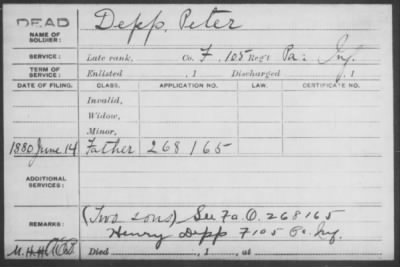 DEAD
NAME OF SOLDIER: Depp, Peter
SERVICE: Late rank, Co. F, 105 Reg't Pa. Inf.
TERM OF SERVICE: Enlisted , 1 Discharged , 1
DATE OF FILING. CLASS. APPLICATION NO. LAW. CERTIFICATE NO.
Invalid,
Widow,
Minor,
1880 June 14 Father 268165
ADDITIONAL SERVICES:
REMARKS: (Two sons) See Fa. O. 268165
Henry Depp F 105 Pa. Inf.
Died , 1 , at